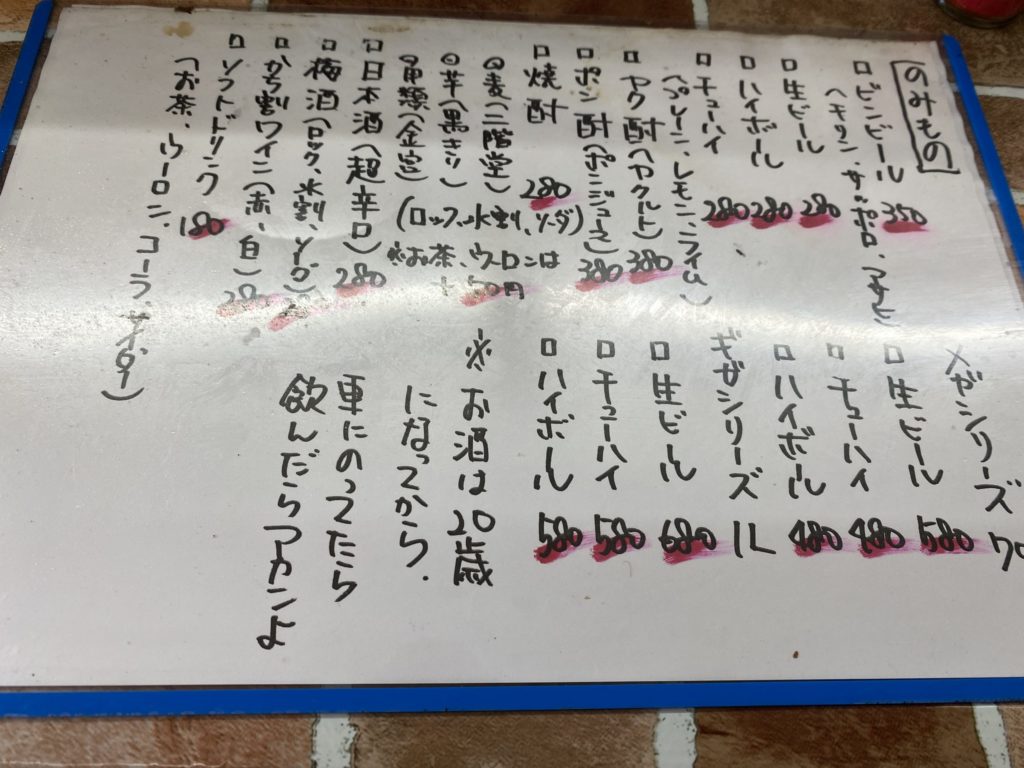 のみもの
ロビンビール 350
(キリン、サッポロ、アサヒ)
ロ生ビール 280
ロハイボール 280
ロチューハイ 280
(プレーン、レモン、ライム)
ロヤク酎(ヤクルト) 380
ロポン酎(ポンジュース) 380
ロ焼酎 280
(ロック、水割、ソーダ)
※お茶、ウーロンは
+50円
◎麦(二階堂)
◎芋(黒きり)
◎甲類(金宮)
ロ日本酒(超辛口) 280
ロ梅酒(ロック、水割、ソーダ)
ロかち割ワイン(赤、白) 280
ロソフトドリンク 180
(お茶、ウーロン、コーラ、サイダー)
メガシリーズ
ロ生ビール 580
ロチューハイ 480
ロハイボール 480
ギガシリーズ 1L
ロ生ビール 680
ロチューハイ 580
ロハイボール 580
※お酒は20歳
になってから.
車にのってたら
飲んだらアカンよ